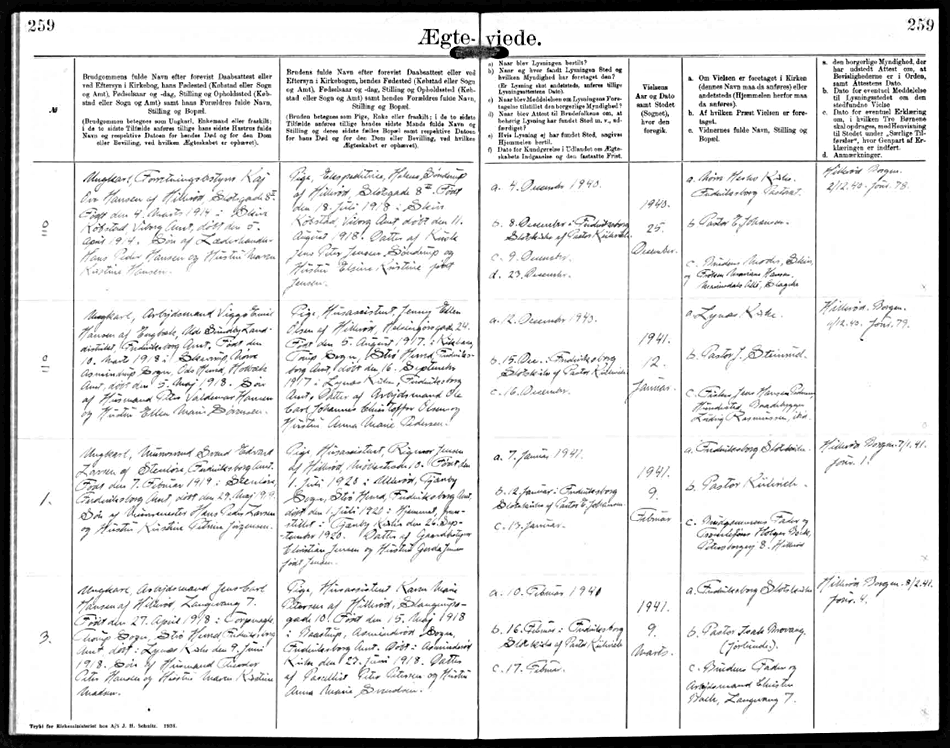 259
259
Ægte- viede.
№
Brudgommens fulde Navn efter forevist Daabsattest eller
ved Eftersyn i Kirkebog, hans Fødested (Købstad eller Sogn
og Amt), Fødselsaar og -dag, Stilling og Opholdssted (Køb-
stad eller Sogn og Amt) samt hans Forældres fulde Navn,
Stilling og Bopæl.
(Brudgommen betegnes som Ungkarl, Enkemand eller fraskilt;
i de to sidste Tilfælde anføres tillige hans sidste Hustrus fulde
Navn og respektive Datoen for hendes Død og for den Dom
eller Bevilling, ved hvilken Ægteskabet er ophævet).
Brudens fulde Navn efter forevist Daabsattest eller ved
Eftersyn i Kirkebogen, hendes Fødested (Købstad eller Sogn
og Amt), Fødselsaar og -dag, Stilling og Opholdssted (Købstad
eller Sogn og Amt) samt hendes Forældres fulde Navn,
Stilling og Bopæl.
(Bruden betegnes som Pige, Enke eller fraskilt; i de to sidste
Tilfælde anføres tillige hendes sidste Mands fulde Navn og
Stilling og deres sidste fælles Bopæl samt respektive Datoen
for hans Død og for den Dom eller Bevilling, ved hvilken
Ægteskabet er ophævet).
a) Naar blev Lysningen bestilt?
b) Naar og hvor fandt Lysningen Sted og
hvilken Myndighed har foretaget den?
(Er Lysning sket andetsteds, anføres tillige
Lysningsattestens Dato).
c) Naar blev Meddelelsen om Lysningens Fore-
tagelse tilstillet den borgerlige Myndighed?
d) Naar blev Attest til Brudefolkene om, at
behørig Lysning har fundet Sted m. v., ud-
færdiget?
e) Hvis Lysning ej har fundet Sted, angives
Hjemmelen hertil.
f) Dato for Kundgørelse i Udlandet om Ægte-
skabets Indgaaelse og den fastsatte Frist.
Vielsens
Aar og Dato
samt Stedet
(Sognet),
hvor den
foregik.
a. Om Vielsen er foretaget i Kirken
(dennes Navn maa da anføres) eller
andetsteds (Hjemmelen herfor maa
da anføres).
b. Af hvilken Præst Vielsen er fore-
taget.
c. Vidnernes fulde Navn, Stilling og
Bopæl.
a. den borgerlige Myndighed, der
har udstedt Attest om, at
Bevislighederne er i Orden,
samt Attestens Dato.
b. Dato for eventuel Meddelelse
til Lysningsstedet om den
stedfundne Vielse
c. Dato for eventuel Erklæring
om, i hvilken Tro Børnene
skal opdrages, med Henvisning
til Stedet under „Særlige Til-
førsler“, hvor Genpart af Er-
klæringen er indført.
d. Anmærkninger.
Ungkarl, Forretningsbestyrer Kaj
Hansen af Hillerød, Slotsgade 8
Født den 4. Marts 1914 i Skive
Købstad, Viborg Amt, døbt den 5.
April 1914. Søn af Læderhandler
Hans Peder Hansen og Hustru Maren
Kastine Hansen.
Pige, Ekspeditrice, Helene Sønderup
af Hillerød Slotsgade 8. Født
den 18. Juli 1918 i Skive
Købstad, Viborg Amt døbt den 11.
August 1918. Datter af Kusk
Jens Peter Jensen Sønderup og
Hustru Elsine Kristine født
Jensen.
a. 4. December 1940.
b. 8. December i Frederiksborg
Slotskirke af Pastor Kühnele
c. 9. December.
d. 23. December.
1940.
25.
December.
Frederiksborg Pastorat.
b. Pastor E. Johansen.
c. Brudens Moder, Skive
og Frøken Mariane Hansen,
Hillerød Borgm.
2/12. 40. Jour. 78.
Ungkarl, Arbejdsmand Viggo Emil
Hansen af Engbæk, Nde Sundby Land-
distrikt, Frederiksborg Amt. Født den
10. Marts 1918 i Skærup, Nørre
Asmindrup Sogn, Ods Herred, Holbæk
Amt, døbt den 5. Maj 1918. Søn
af Husmand Peter Valdemar Hansen
og Hustru Ellen Marie Sørensen.
Pige, Husassistent, Jenny Ellen
Olsen af Hillerød, Helsingørsgade 24.
Født den 5. August 1917 i Kirkeby,
Torup Sogn, Strø Herred, Frederiks-
borg Amt, døbt den 16. September
1917 i Lynæs Kirke, Frederiksborg
Amt, Datter af Arbejdsmand Ole
Carl Johannes Christoffer Olsen og
Hustru Anna Marie Pedersen.
a. 12. December 1940.
b. 15. Dec. i Frederiksborg
Slotskirke af Pastor Kühnele
c. 16. December.
1941.
12.
Januar.
a. Lynæs Kirke.
b. Pastor J. Steinrud.
c. Fisker Jens Hansen Pedersen,
Hundested, Baadebygger
Ludvig Rasmussen, ibd.
Hillerød Borgm.
11/12. 40. Jour. 79.
1.
Ungkarl, Murersvend Svend Edvard
Larsen af Stenløse, Frederiksborg Amt.
Født den 7. Februar 1919 i Stenløse,
Frederiksborg Amt, døbt den 29. Maj 1919.
Søn af Murermester Hans Peder Larsen
og Hustru Kristine Petrine Jørgensen.
Pige, Husassistent, Rigmor Jensen
af Hillerød, Møllestræde 10. Født den
1. Juli 1920 i Ullerød, Tjæreby
Sogn, Strø Herred, Frederiksborg Amt,
døbt den 1. Juli 1920 i Hjemmet, frem-
stillet i Tjæreby Kirke den 26. Sep-
tember 1920. Datter af Gaardbestyrer
Christian Jensen og Hustru Gerda Jensen
født Jensen.
a. 7. Januar 1941.
b. 12. Januar i Frederiksborg
Slotskirke af Pastor E. Johansen
c. 13. Januar.
1941.
9.
Februar
a. Frederiksborg Slotskirke.
b. Pastor Kühnele.
c. Brudgommens Fader og
Petersborgvej 8. Hillerød
Hillerød Borgm. 7/1. 41.
Jour. 1.
3.
Ungkarl, Arbejdsmand Jens Carl
Hansen af Hillerød, Langvang 7.
Født den 27. April 1918 i Torpmagle,
Thorup Sogn, Strø Herred, Frederiksborg
Amt, døbt i Lynæs Kirke den 9. Juni
1918. Søn af Husmand Thorvar
Peter Hansen og Hustru Maren Kirstine
Madsen.
Pige, Husassistent Karen Marie
Petersen af Hillerød, Slangerups-
gade 10. Født den 15. Maj 1918
i Baastrup, Asminderød Sogn,
Frederiksborg Amt. døbt i Asminderød
Kirke den 23. Juni 1918. Datter
af Parcellist Peter Petersen og Hustru
Anna Marie Svendsen.
a. 10. Februar 1941
b. 16. Februar i Frederiksborg
Slotskirke af Pastor Kühnele
c. 17. Februar.
1941.
9.
Marts.
a. Frederiksborg Slotskirke
b. Pastor
c. Brudens Fader og
Arbejdsmand Christen
Bach, Langvang 7.
Hillerød Borgm. 8/2. 41.
Jour. 4.
Trykt for Kirkeministeriet hos A/S J. H. Schultz. 1931.